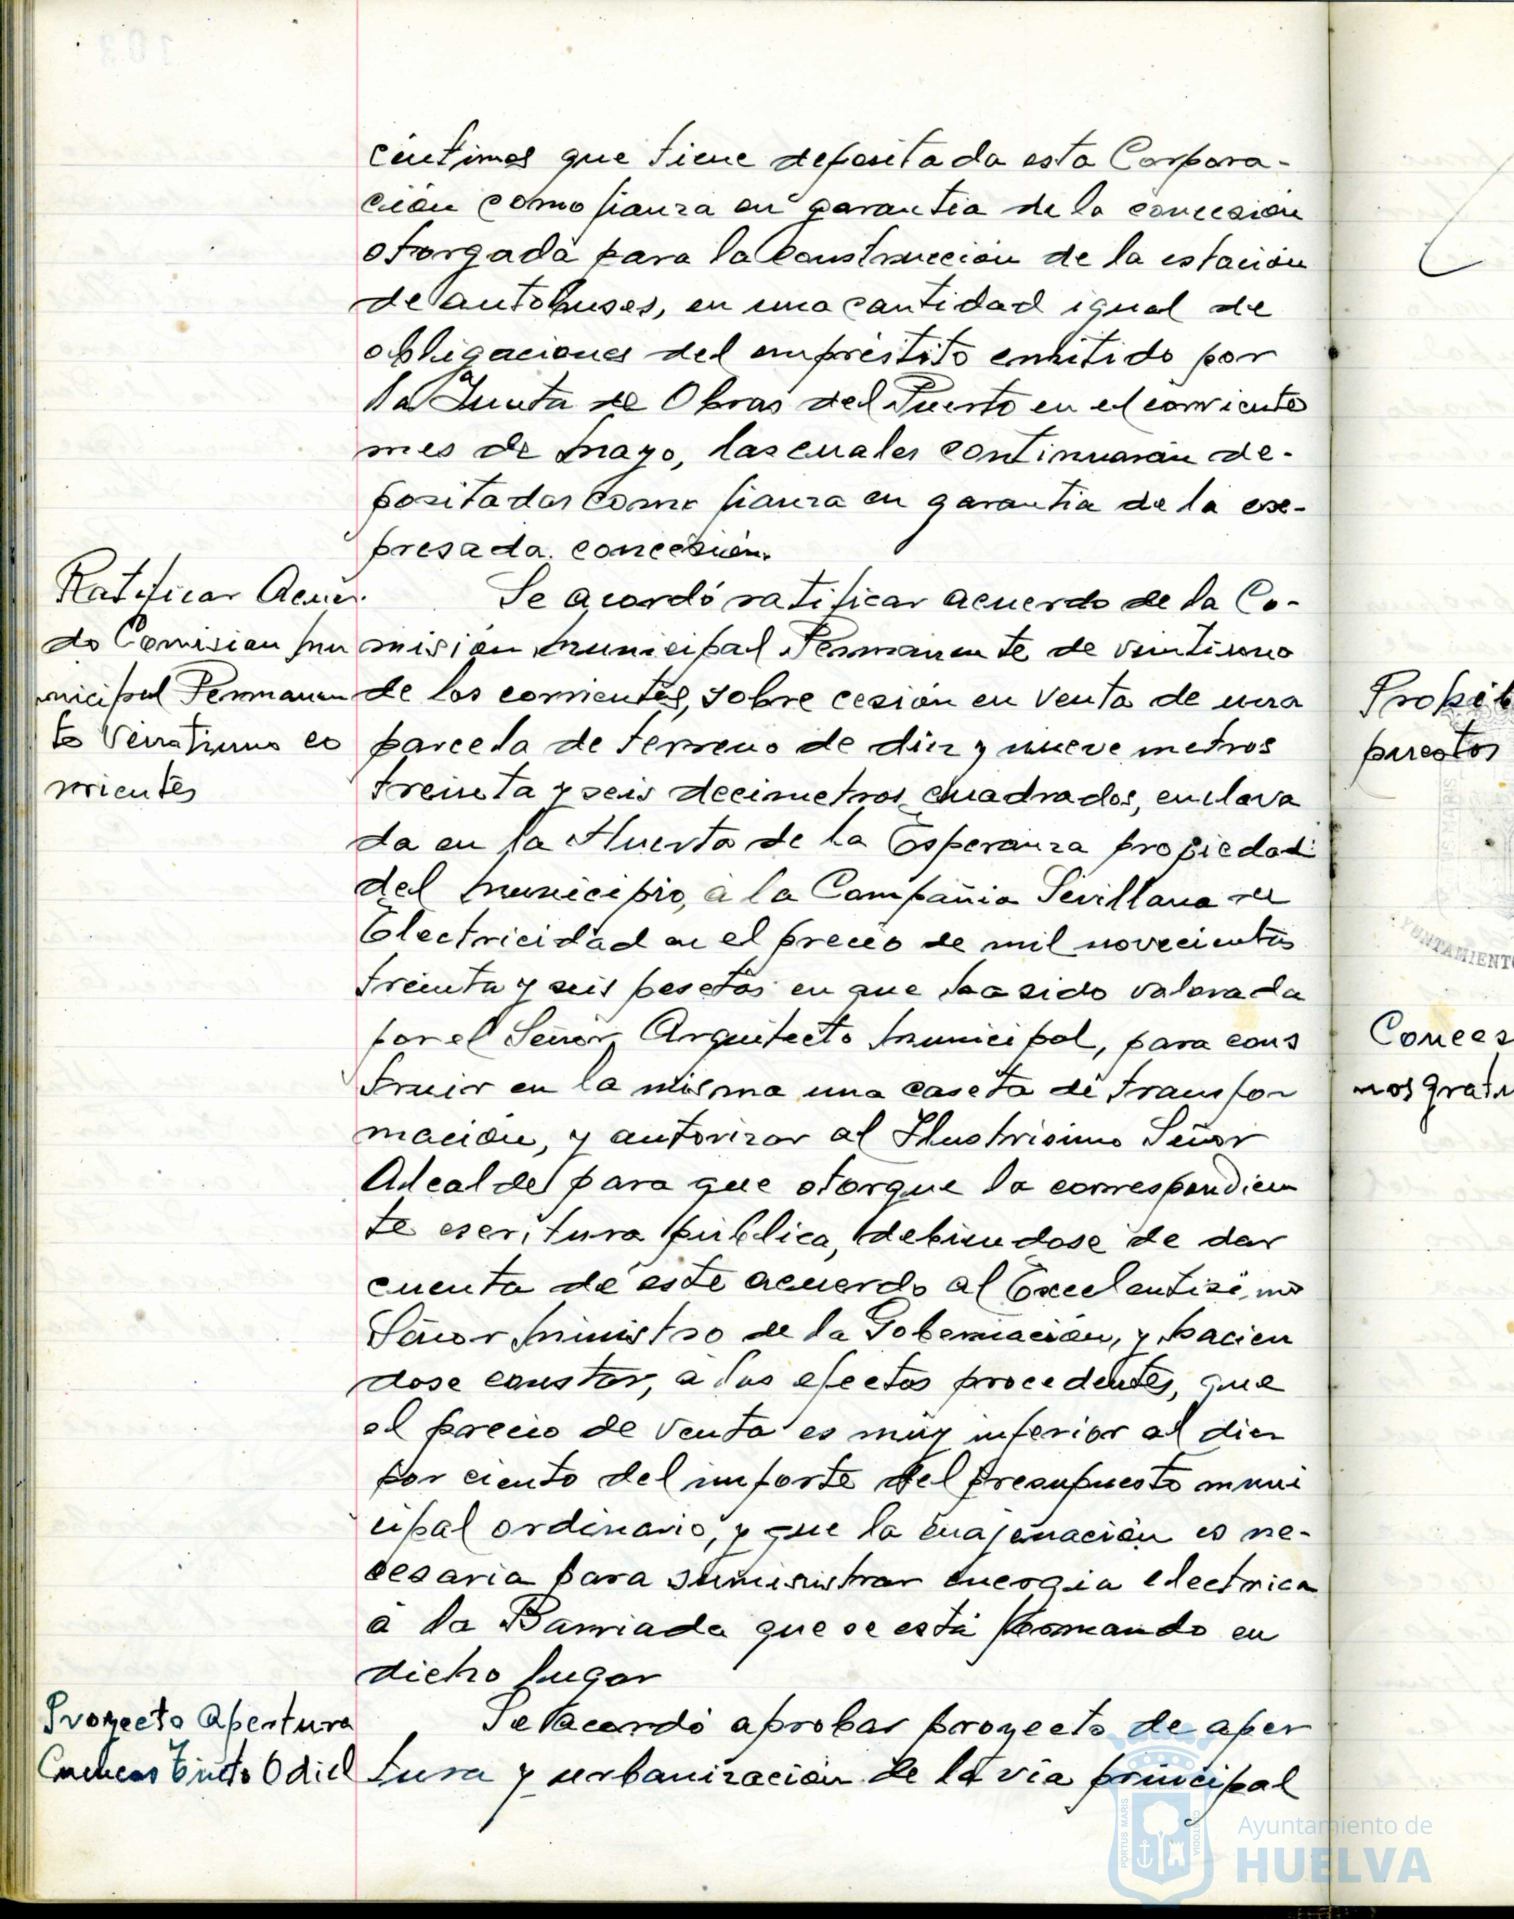 céntimos que tiene depositada esta Corpora-
ción como fianza en garantia de la concesión
otorgada para la construcción de la estación
de autobuses, en una cantidad igual de
obligaciones del empréstito emitido por
la Junta de Obras del Puerto en el corriente
mes de mayo, las cuales continuarán de-
positadas como fianza en garantia de la ex-
presada concesión.
Ratificar Acuer-
do Comision mu
nicipal Permanen
te veintiuno co
rrientes
Se acordó ratificar acuerdo de la Co-
misión municipal Permanente de veintiuno
de los corrientes, sobre cesión en venta de una
parcela de terreno de diez y nueve metros
treinta y seis decimetros cuadrados, enclava
da en la Huerta de la Esperanza propiedad
del municipio, à la Compañia Sevillana de
Electricidad en el precio de mil novecientas
treinta y seis pesetas en que ha sido valorada
por el Señor Arquitecto municipal, para cons
truir en la misma una caseta de transfor
mación, y autorizar al Ilustrisimo Señor
Alcalde para que otorgue la correspondien
te escritura pública, debiendose de dar
cuenta de este acuerdo al Excelentisimo
Señor Ministro de la Gobernación, y hacien
dose constar, à los efectos procedentes, que
el precio de venta es muy inferior al diez
por ciento del importe del presupuesto muni
cipal ordinario, y que la enajenación es ne-
cesaria para suministrar energia electrica
à la Barriada que se está formando en
dicho lugar
Proyecto Apertura
Cuencas Tinto Odiel
Se acordó aprobar proyecto de aper
tura y urbanización de la via principal
puestos
Conces
nos gratu
AYUNTAMIENTO
Ayuntamiento de
HUELVA